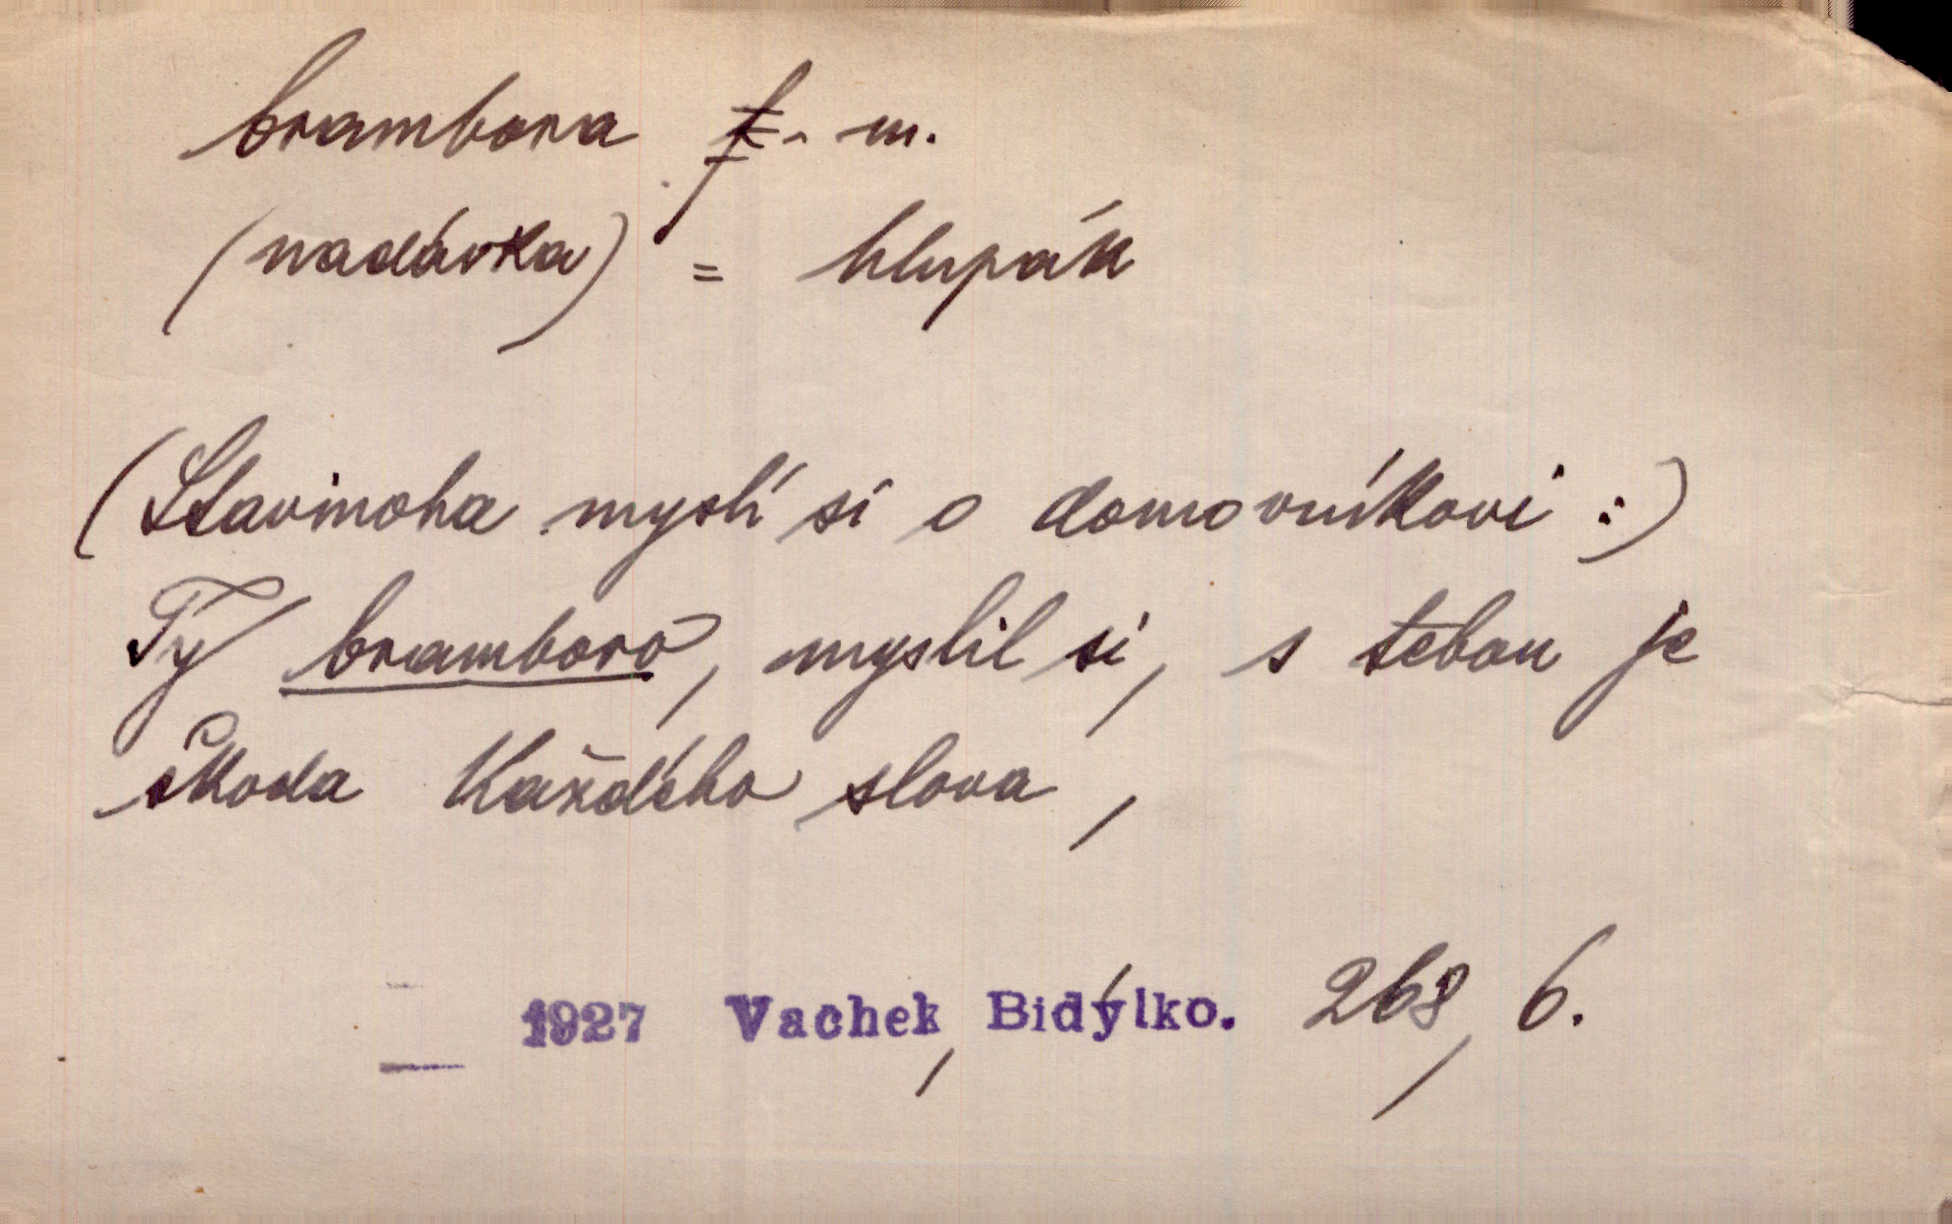 brambora f. m.
(nadávka) = hlupák
(Stavinoha myslí si o domovníkovi :)
Ty bramboro, myslil si, s tebou je
škoda každého slova,
1927 Vachek, Bidýlko. 268, 6.